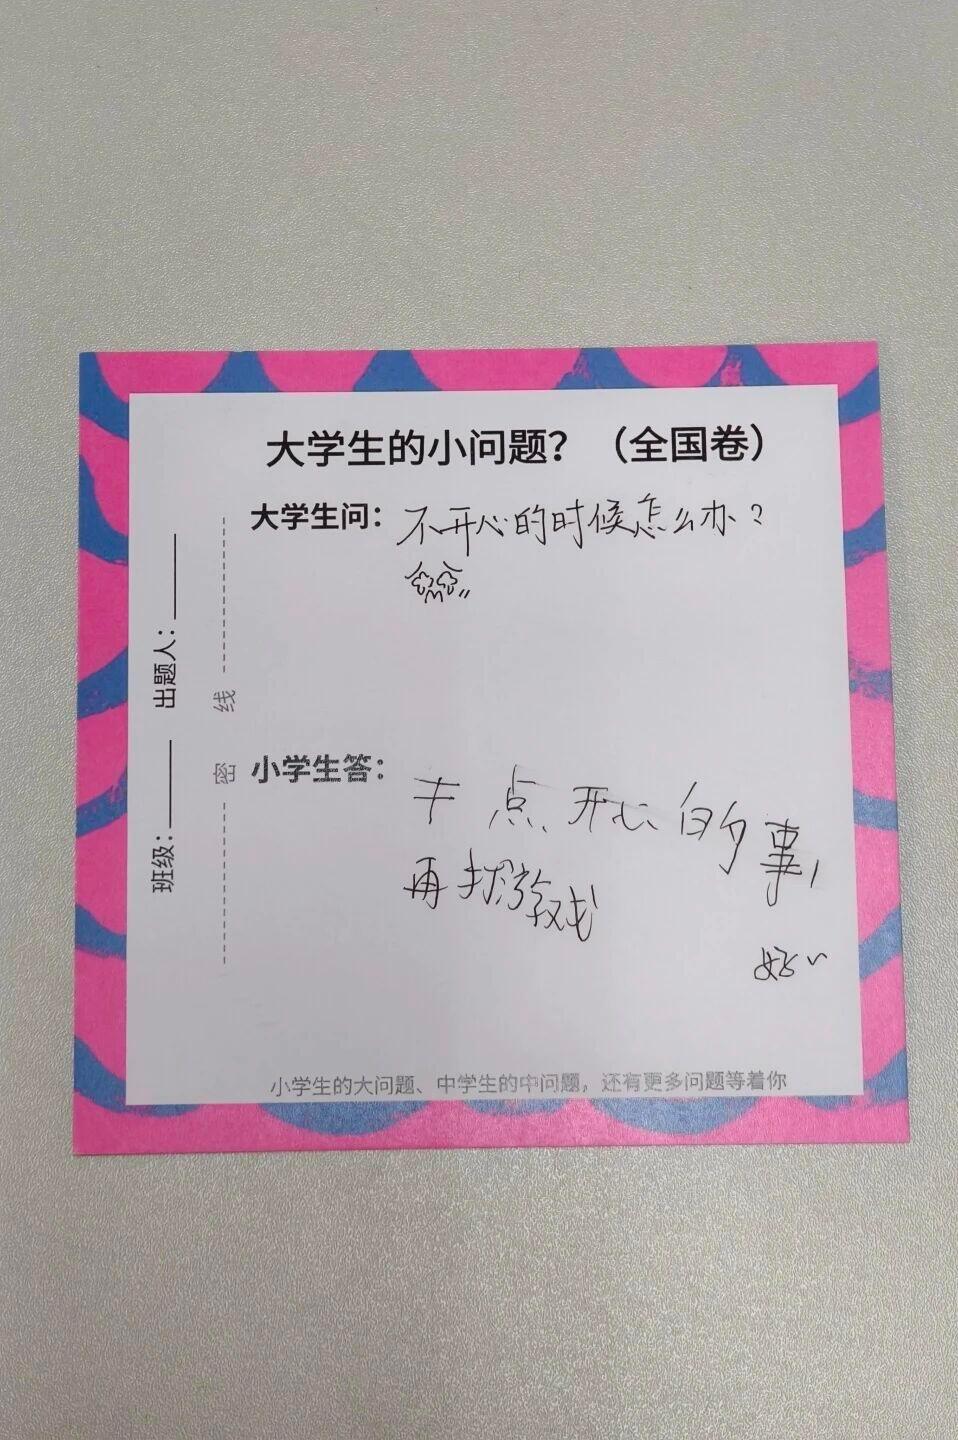 大学生的小问题？（全国卷）
大学生问：不开心的时候怎么办？
小学生答：
点开心的事，
再打游戏
好
小学生的大问题、中学生的中问题，还有更多问题等着你
班级：
出题人：
密
线